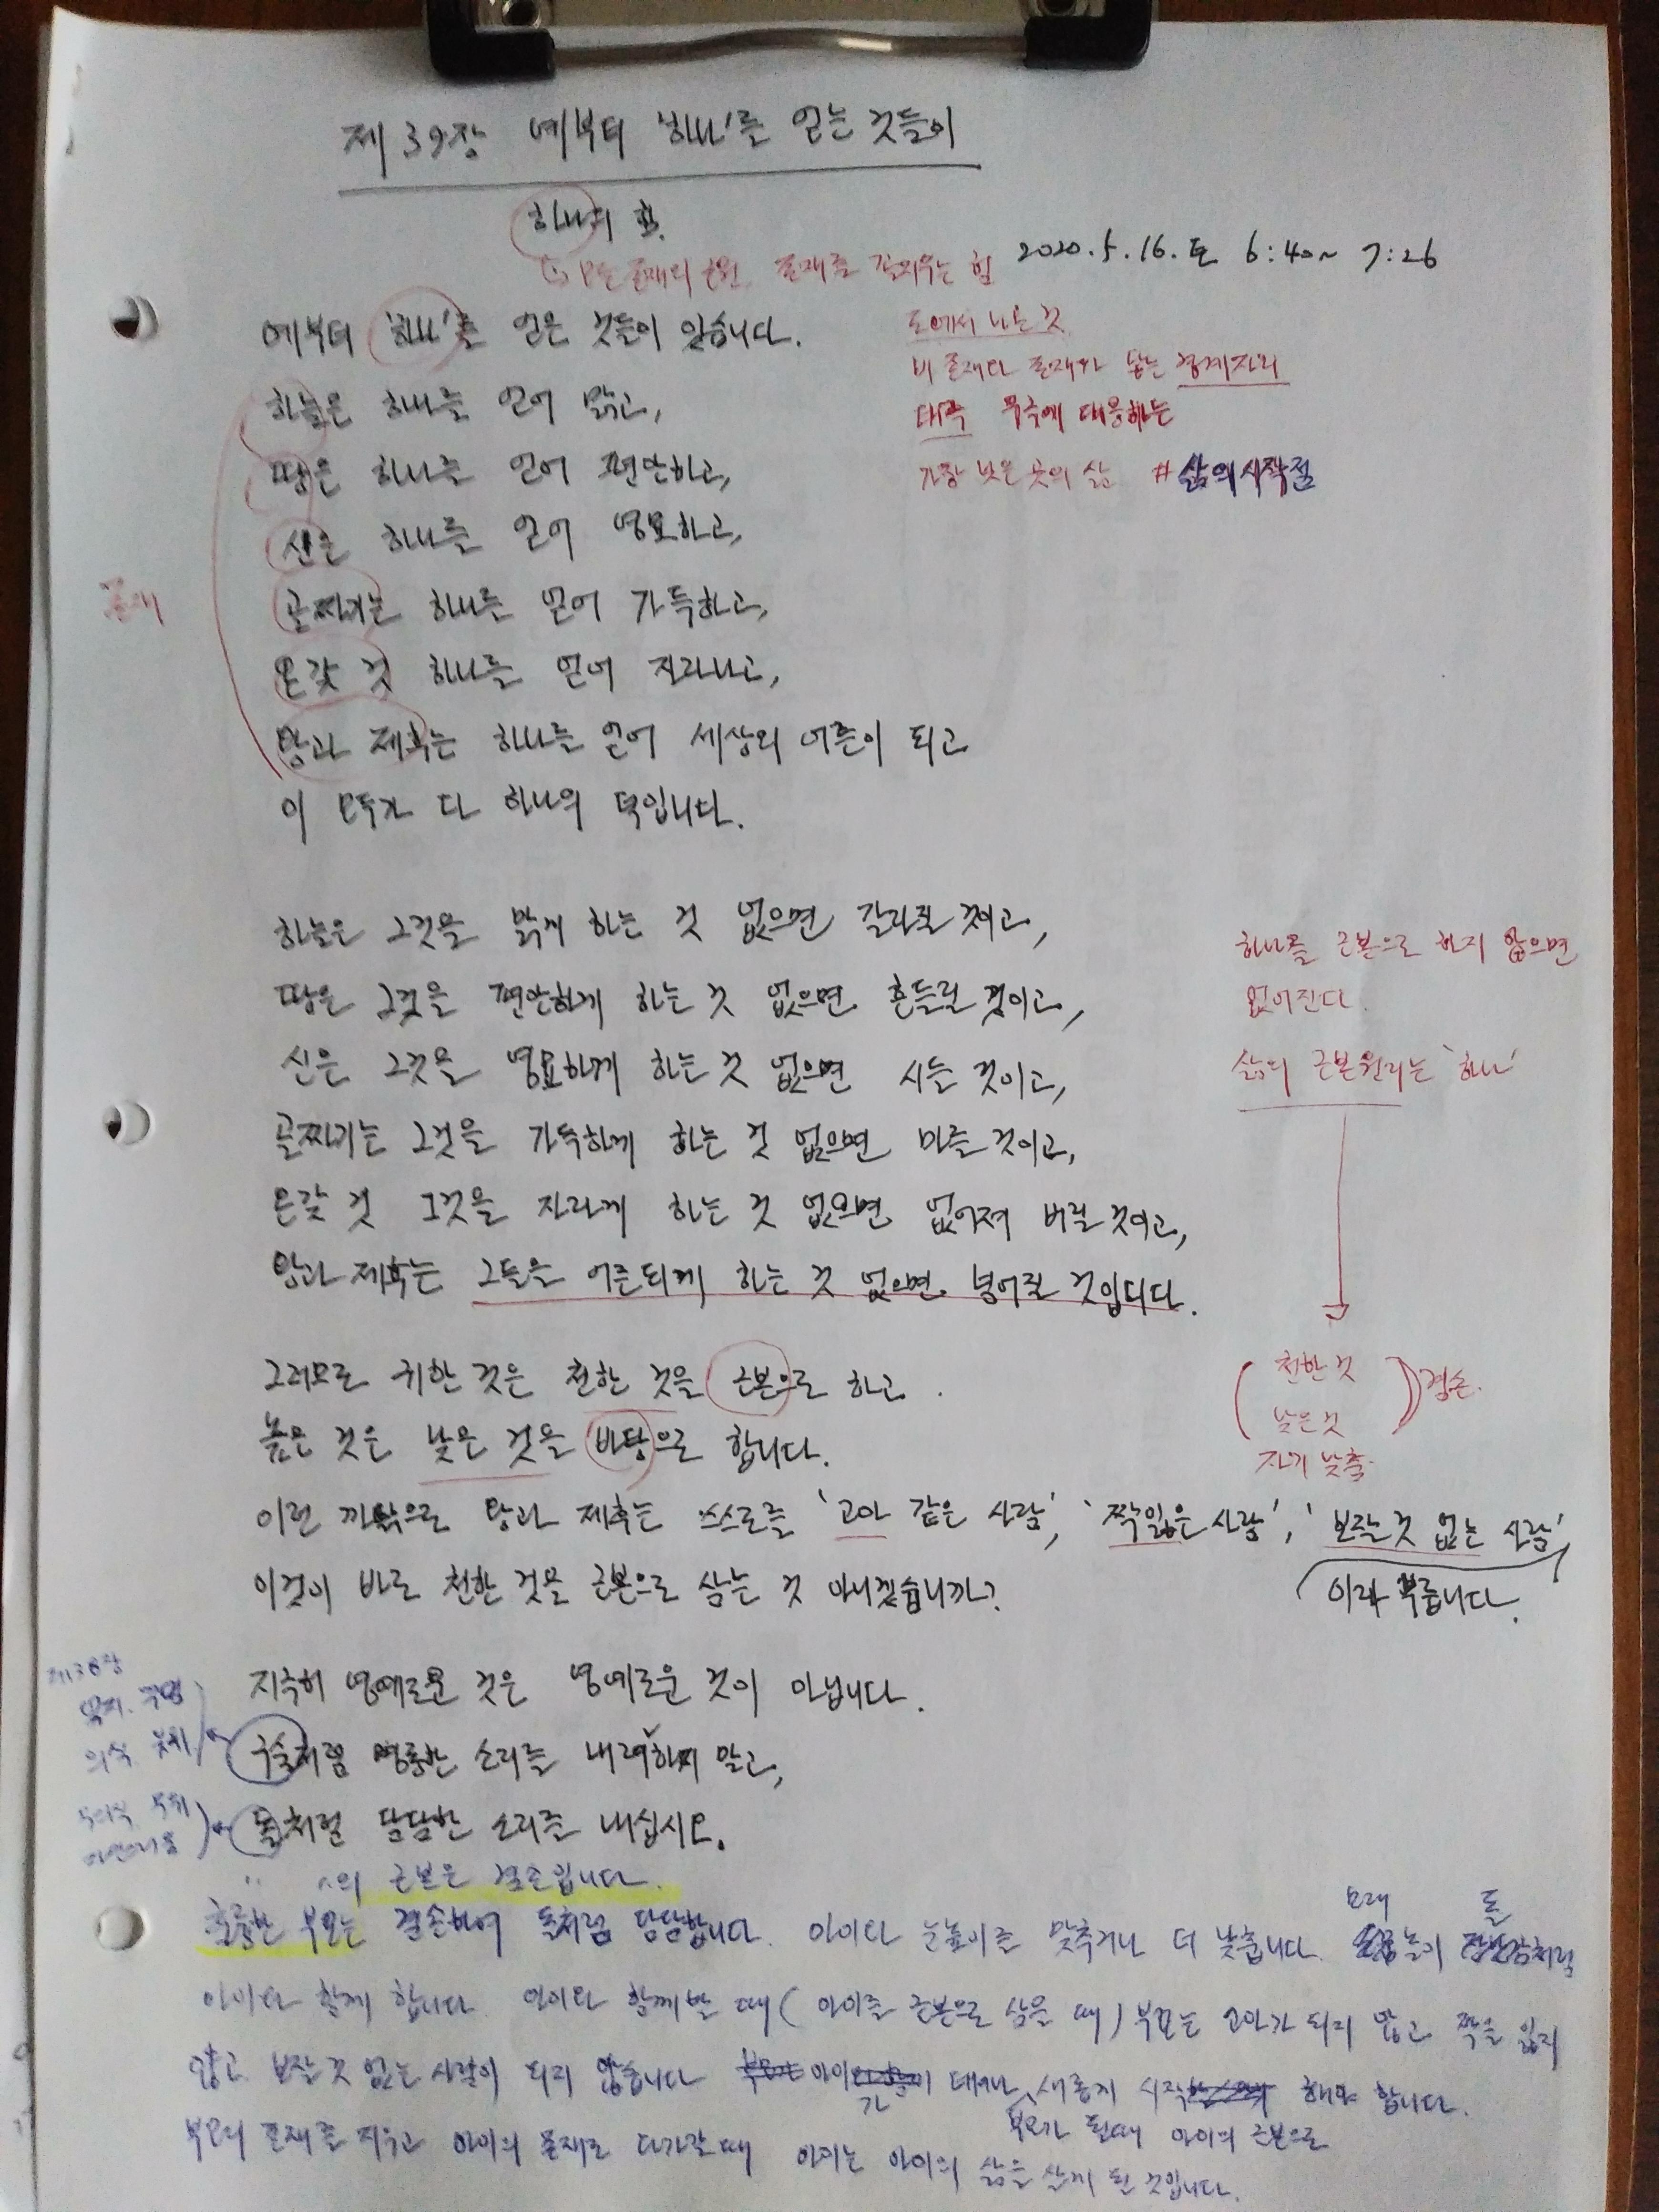 제39장 예부터 '하나'를 얻는 것들이
하나의 효.
모든 존재의 근원 존재를 채우는 힘 2020.5.16.토 6:40~7:26
예부터 '하나'를 얻은 것들이 있습니다.
도에서 나온 것
비존재다 존재와 닿는 경계자리
하늘은 하나를 얻어 맑고,
태극 무극에 대응하는
땅은 하나를 얻어 편안하고,
가장 낮은 곳의 삶 #삶의시작점
신은 하나를 얻어 영묘하고,
골짜기는 하나를 얻어 가득하고,
존재
온갖 것 하나를 얻어 자라나고,
왕과 제후는 하나를 얻어 세상의 어른이 되고
이 모두가 다 하나의 덕입니다.
하늘은 그것을 맑게 하는 것 없으면 갈라질 것이고,
하나를 근본으로 하지 않으면
땅은 그것을 편안하게 하는 것 없으면 흔들릴 것이고,
없어진다.
신은 그것을 영묘하게 하는 것 없으면 시들 것이고,
삶의 근본원리는 '하나'
골짜기는 그것을 가득하게 하는 것 없으면 마를 것이고,
온갖 것 그것을 자라게 하는 것 없으면 없어져 버릴 것이고,
왕과 제후는 그들을 어른되게 하는 것 없으면 넘어질 것입니다.
그러므로 귀한 것은 천한 것을 근본으로 하고
천한 것
겸손.
높은 것은 낮은 것을 바탕으로 합니다.
낮은 것
자기 낮춤
이런 까닭으로 왕과 제후는 스스로를 '고아 같은 사람', '짝잃은 사람', '보잘 것 없는 사람'
이라 부릅니다.
이것이 바로 천한 것을 근본으로 삼는 것 아니겠습니까?
제38장
지극히 영예로운 것은 영예로운 것이 아닙니다.
의식
구슬처럼 영롱한 소리를 내려하지 말고,
무의식 무위
돌처럼 담담한 소리를 내십시오.
의 근본은 겸손입니다.
모래 돌
훌륭한 부모는 겸손하여 돌처럼 담담합니다. 아이와 눈높이를 맞추거나 더 낮춥니다. 놀이 처럼
아이와 함께 합니다. 아이와 함께할 때 (아이를 근본으로 삼을 때) 부모는 고아가 되지 않고 짝을 잃지
않고 보잘 것 없는 사람이 되지 않습니다. 아이가 태어나 새롭게 시작해야 합니다.
부모가 될때 아이의 근본으로
부모의 존재를 지우고 아이의 존재로 다가갈 때 아이는 아이의 삶을 살게 될 것입니다.